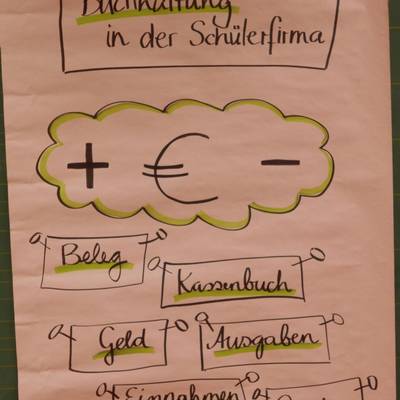 Buchhaltung
in der Schülerfirma
+ € −
Beleg
Kassenbuch
Geld Ausgaben
Einnahmen